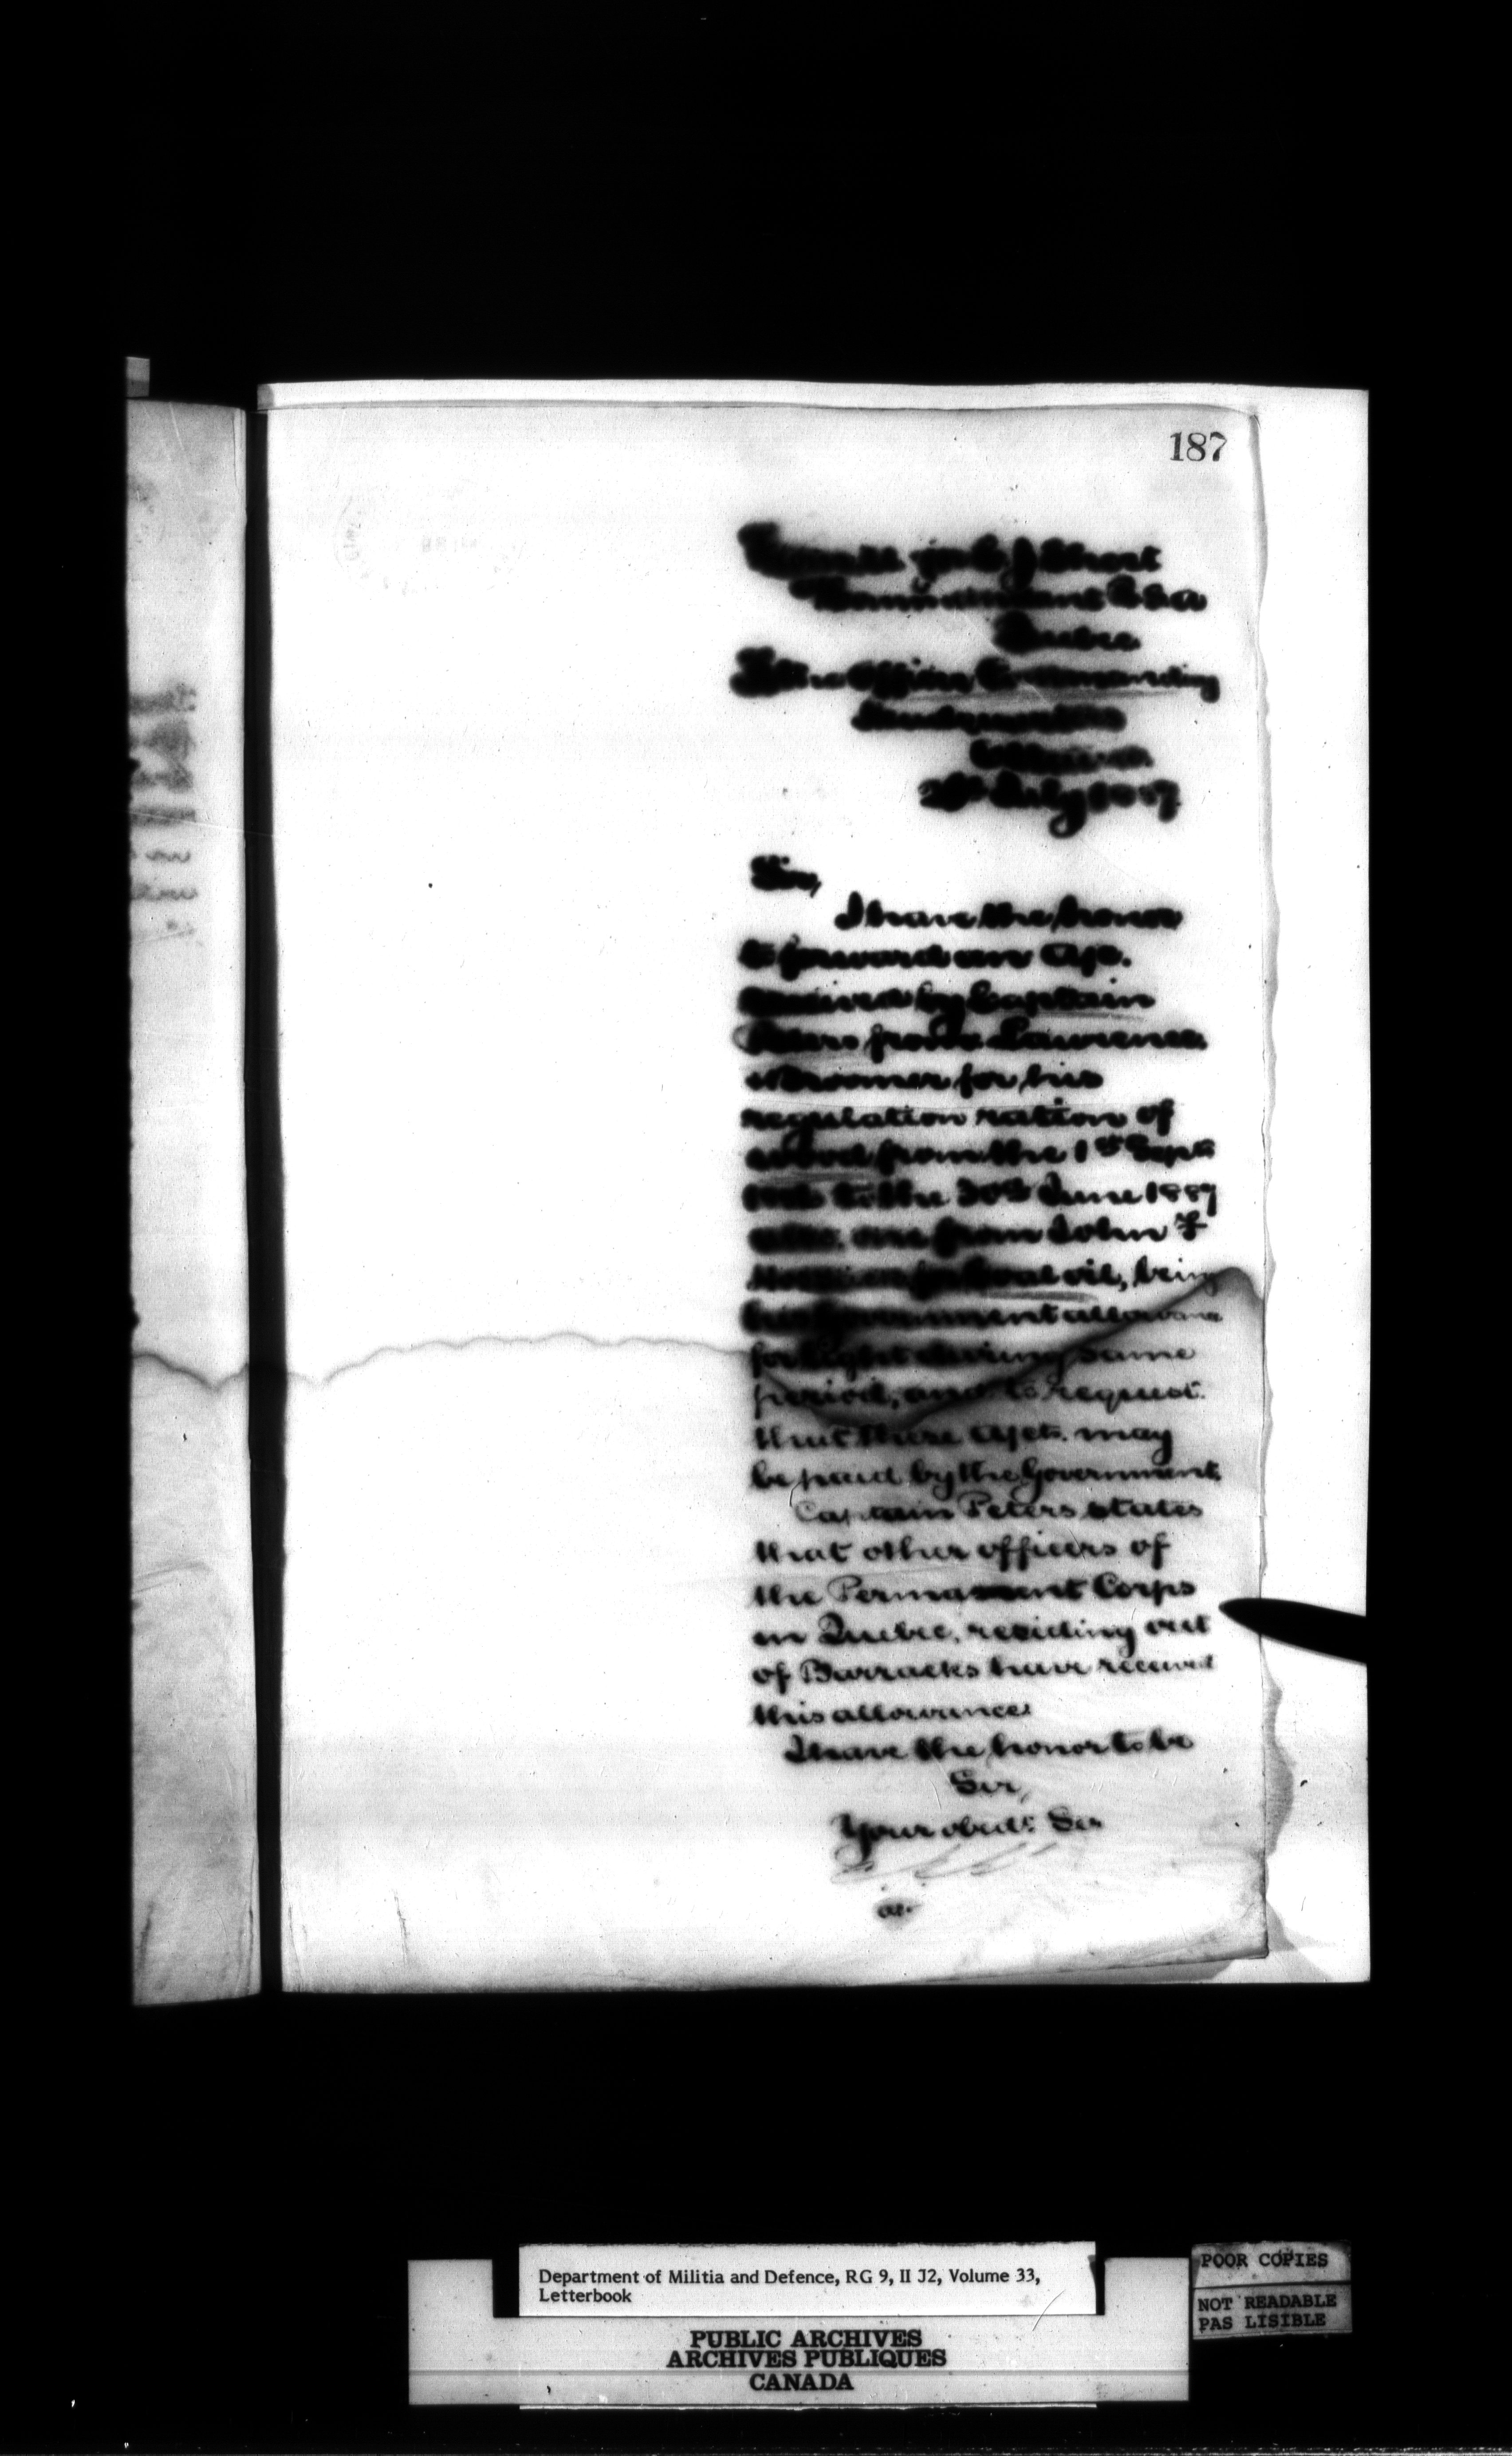 187
Short
Commandant
Quebec
The Officer Commanding
Ottawa
July 1887
Sir,
I have the honor
to forward an Apt.
received by Captain
Peters from Lawrence
for his
regulation ration of
wood from the 1st Septr
to the 30th June 1887
one from John F
coal oil, being
his Government allowance
for Light during same
period, and to request
that these Apts. may
be paid by the Government.
Captain Peters states
that other officers of
the Permanent Corps
in Quebec, residing out
of Barracks have received
this allowance
I have the honor to be
Sir,
Your obedt. Ser
Department of Militia and Defence, RG 9, II J2, Volume 33,
Letterbook
PUBLIC ARCHIVES
ARCHIVES PUBLIQUES
CANADA
POOR COPIES
NOT READABLE
PAS LISIBLE